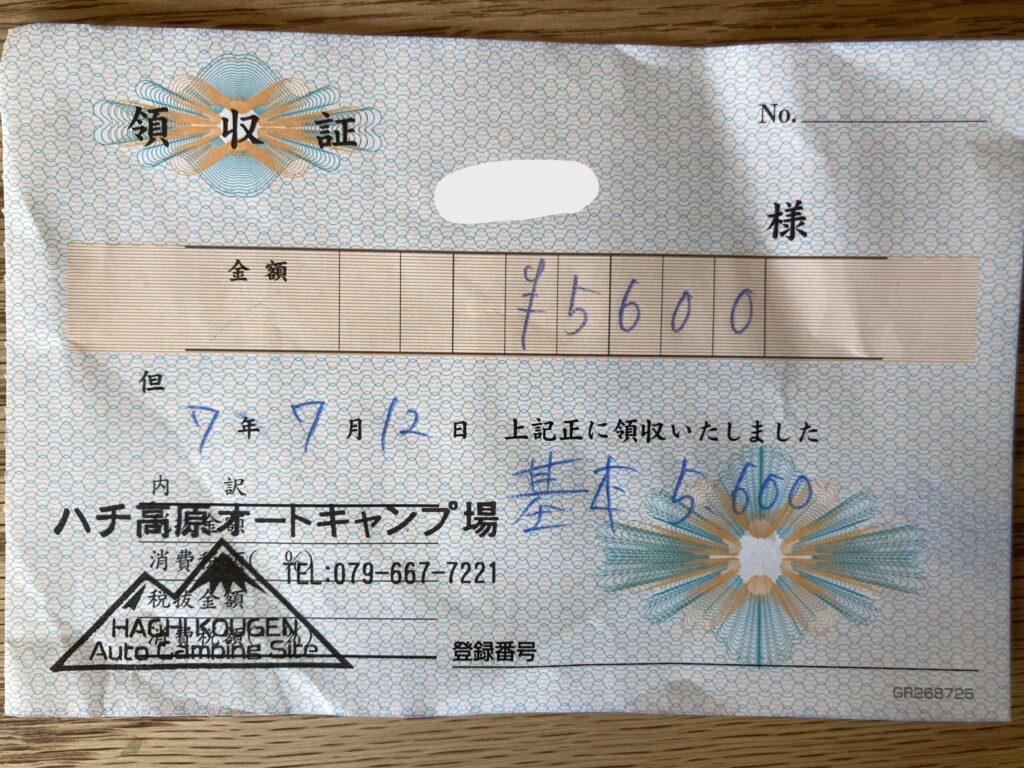 領収証
No.
様
金額 ¥5600
但
7年 7月 12日 上記正に領収いたしました
基本 5.600
内訳
ハチ高原オートキャンプ場
消費税額( %)
TEL:079-667-7221
税抜金額
HACHI KOUGEN
消費税額( %)
Auto Camping Site
登録番号
GR268725